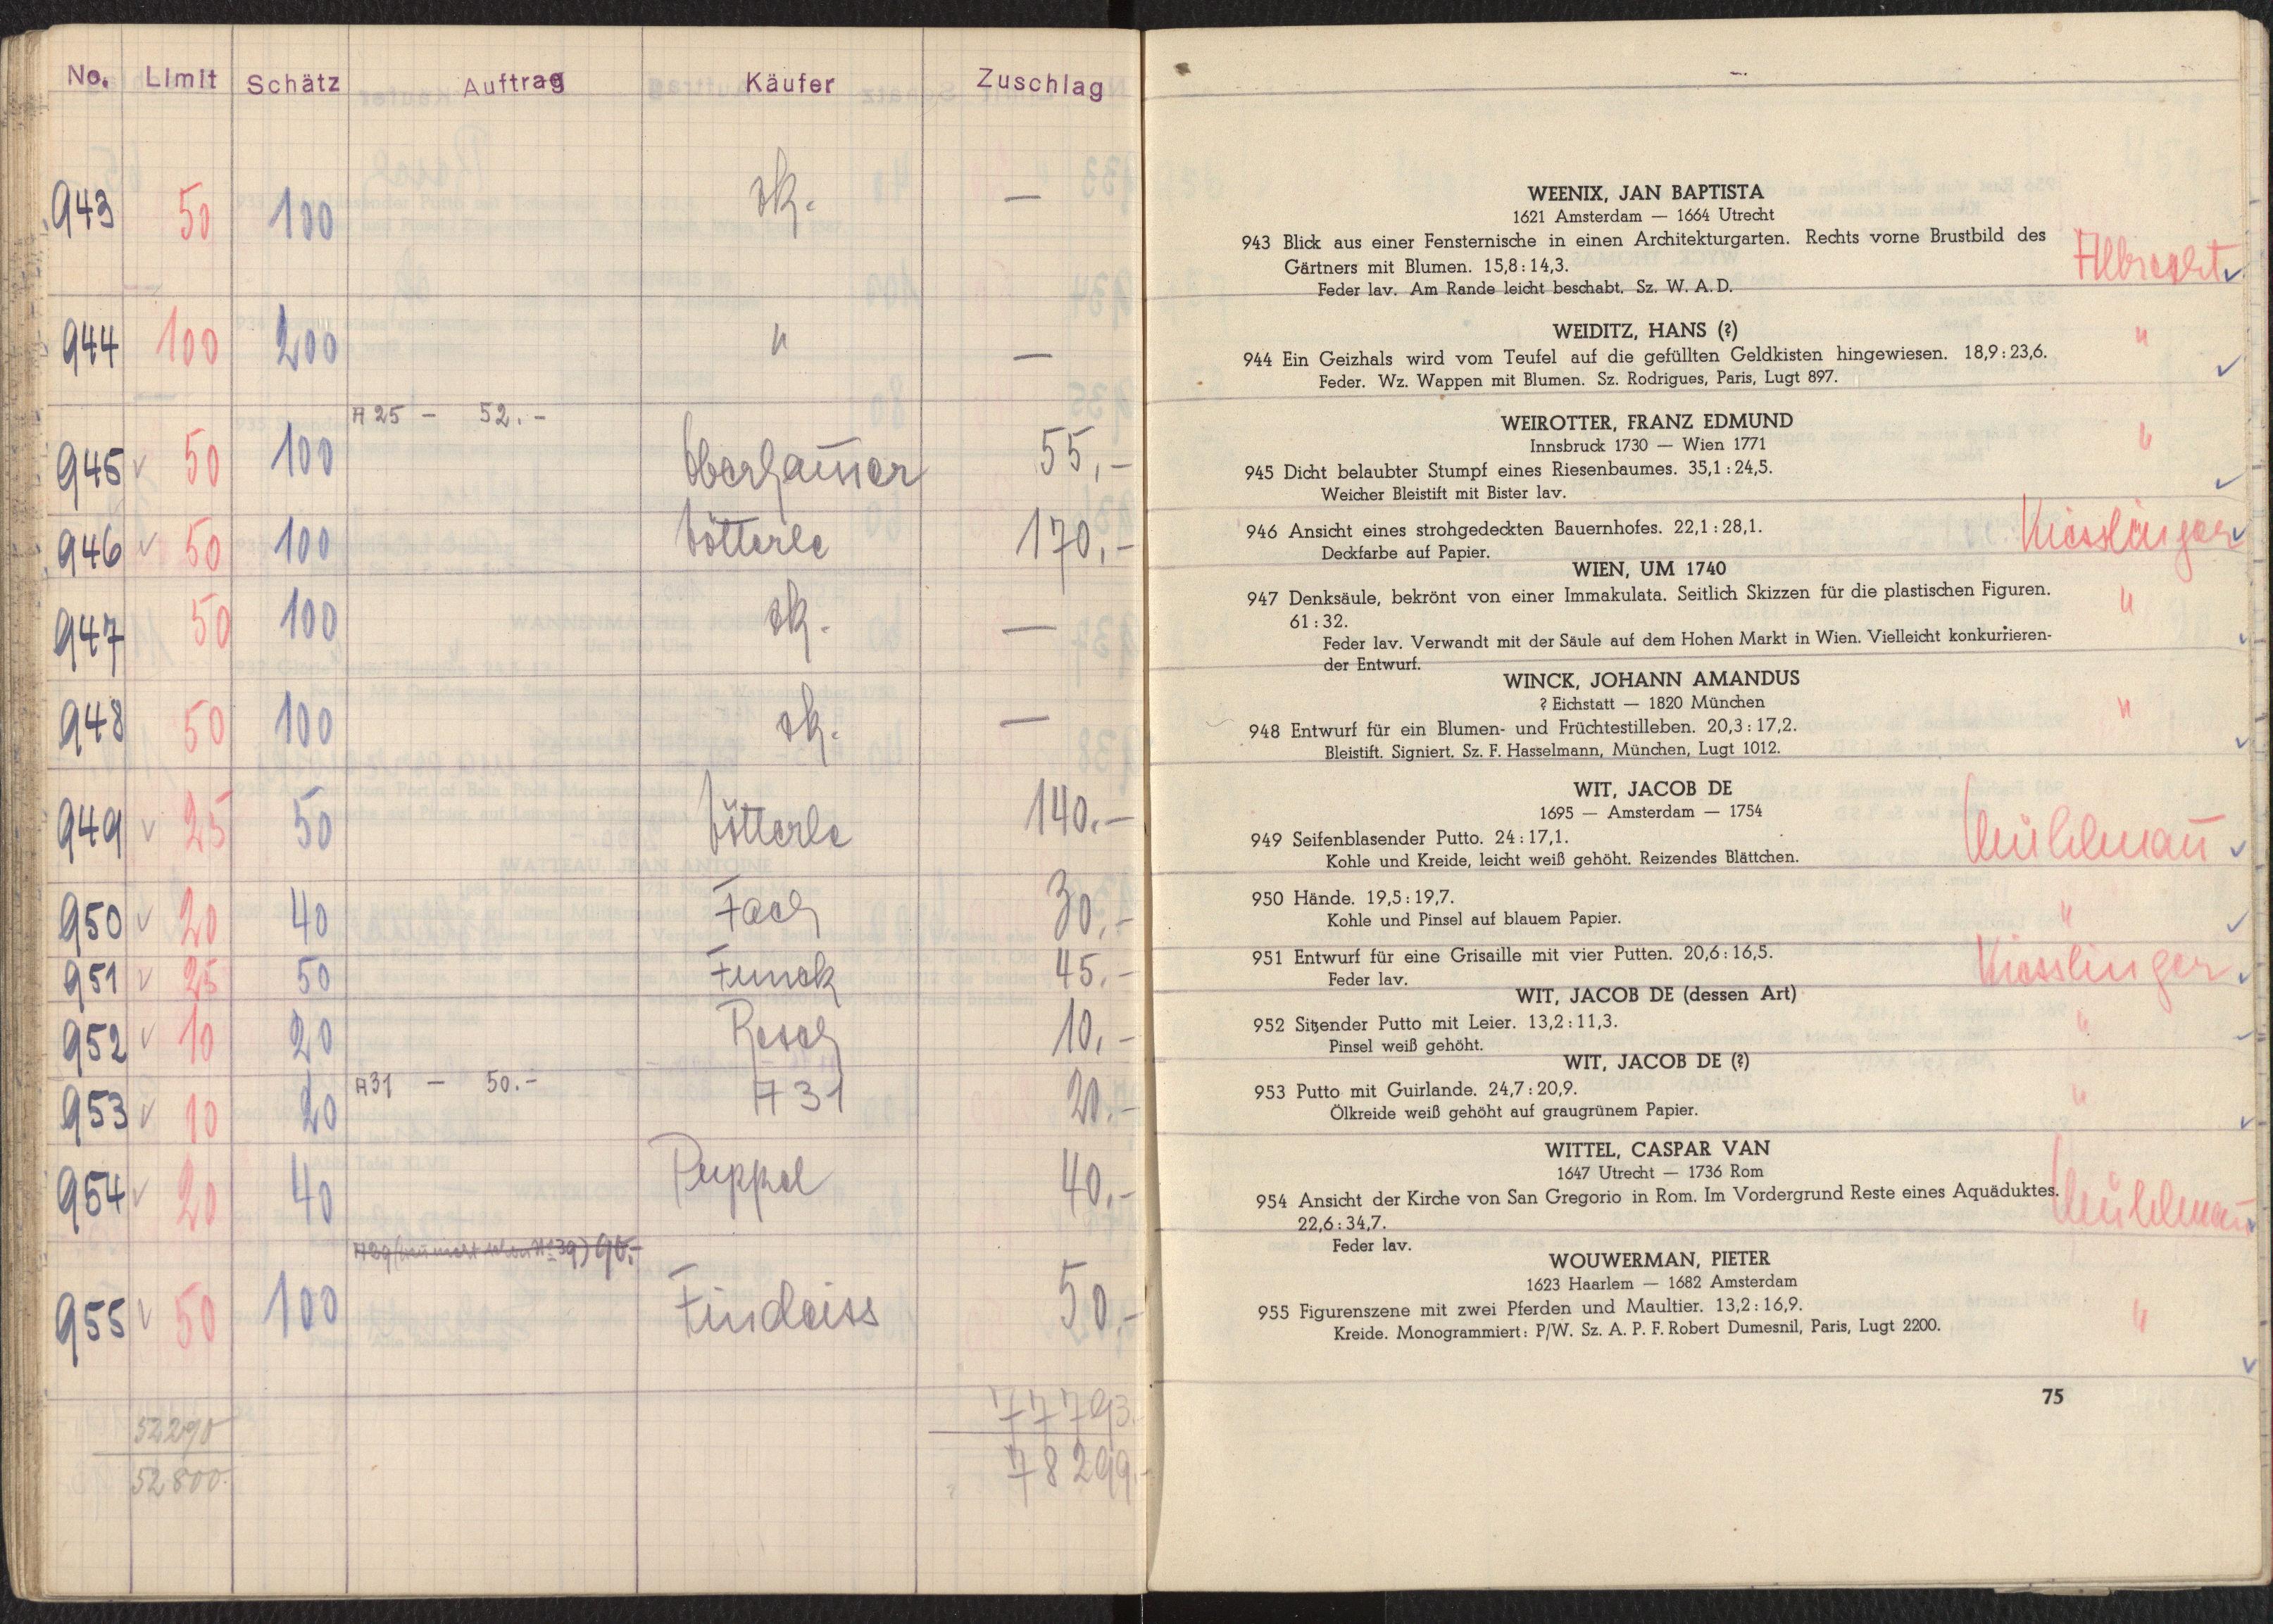 No. Limit Schätz Auftrag Käufer Zuschlag
943 50 100 zk. —
944 100 200 " —
A 25 — 52.-
945 ✓ 50 100 Oberhauser 55,-
946 ✓ 50 100 Götterle 170,-
947 50 100 zk. —
948 50 100 zk. —
949 ✓ 25 50 Götterle 140.—
950 ✓ 20 40 Fach 30,-
951 ✓ 25 50 Funck 45.-
952 ✓ 10 20 Resch 10,-
A31 — 50.-
953 ✓ 10 20 A 31 20.-
954 ✓ 20 40 Puppel 40.-
A29 90.-
955 ✓ 50 100 Findeiss 50.-
52290 77793.
52800.- 78299.-
WEENIX, JAN BAPTISTA
1621 Amsterdam — 1664 Utrecht
943 Blick aus einer Fensternische in einen Architekturgarten. Rechts vorne Brustbild des
Gärtners mit Blumen. 15,8 : 14,3. Albrecht ✓
Feder lav. Am Rande leicht beschabt. Sz. W. A. D.
WEIDITZ, HANS (?)
944 Ein Geizhals wird vom Teufel auf die gefüllten Geldkisten hingewiesen. 18,9 : 23,6. " ✓
Feder. Wz. Wappen mit Blumen. Sz. Rodrigues, Paris, Lugt 897.
WEIROTTER, FRANZ EDMUND
Innsbruck 1730 — Wien 1771 "
945 Dicht belaubter Stumpf eines Riesenbaumes. 35,1 : 24,5. ✓
Weicher Bleistift mit Bister lav.
946 Ansicht eines strohgedeckten Bauernhofes. 22,1 : 28,1. Kiesslinger ✓
Deckfarbe auf Papier.
WIEN, UM 1740
947 Denksäule, bekrönt von einer Immakulata. Seitlich Skizzen für die plastischen Figuren. "
61 : 32.
Feder lav. Verwandt mit der Säule auf dem Hohen Markt in Wien. Vielleicht konkurrieren- ✓
der Entwurf.
WINCK, JOHANN AMANDUS
? Eichstatt — 1820 München "
948 Entwurf für ein Blumen- und Früchtestilleben. 20,3 : 17,2. ✓
Bleistift. Signiert. Sz. F. Hasselmann, München, Lugt 1012.
WIT, JACOB DE
1695 — Amsterdam — 1754
949 Seifenblasender Putto. 24 : 17,1. Mühlmann ✓
Kohle und Kreide, leicht weiß gehöht. Reizendes Blättchen.
950 Hände. 19,5 : 19,7. "
Kohle und Pinsel auf blauem Papier. ✓
951 Entwurf für eine Grisaille mit vier Putten. 20,6 : 16,5. Kiesslinger ✓
Feder lav.
WIT, JACOB DE (dessen Art)
952 Sitzender Putto mit Leier. 13,2 : 11,3. " ✓
Pinsel weiß gehöht.
WIT, JACOB DE (?)
953 Putto mit Guirlande. 24,7 : 20,9. "
Ölkreide weiß gehöht auf graugrünem Papier. ✓
WITTEL, CASPAR VAN
1647 Utrecht — 1736 Rom
954 Ansicht der Kirche von San Gregorio in Rom. Im Vordergrund Reste eines Aquäduktes. Mühlmann ✓
22,6 : 34,7.
Feder lav.
WOUWERMAN, PIETER
1623 Haarlem — 1682 Amsterdam
955 Figurenszene mit zwei Pferden und Maultier. 13,2 : 16,9. "
Kreide. Monogrammiert: P/W. Sz. A. P. F. Robert Dumesnil, Paris, Lugt 2200. ✓
75